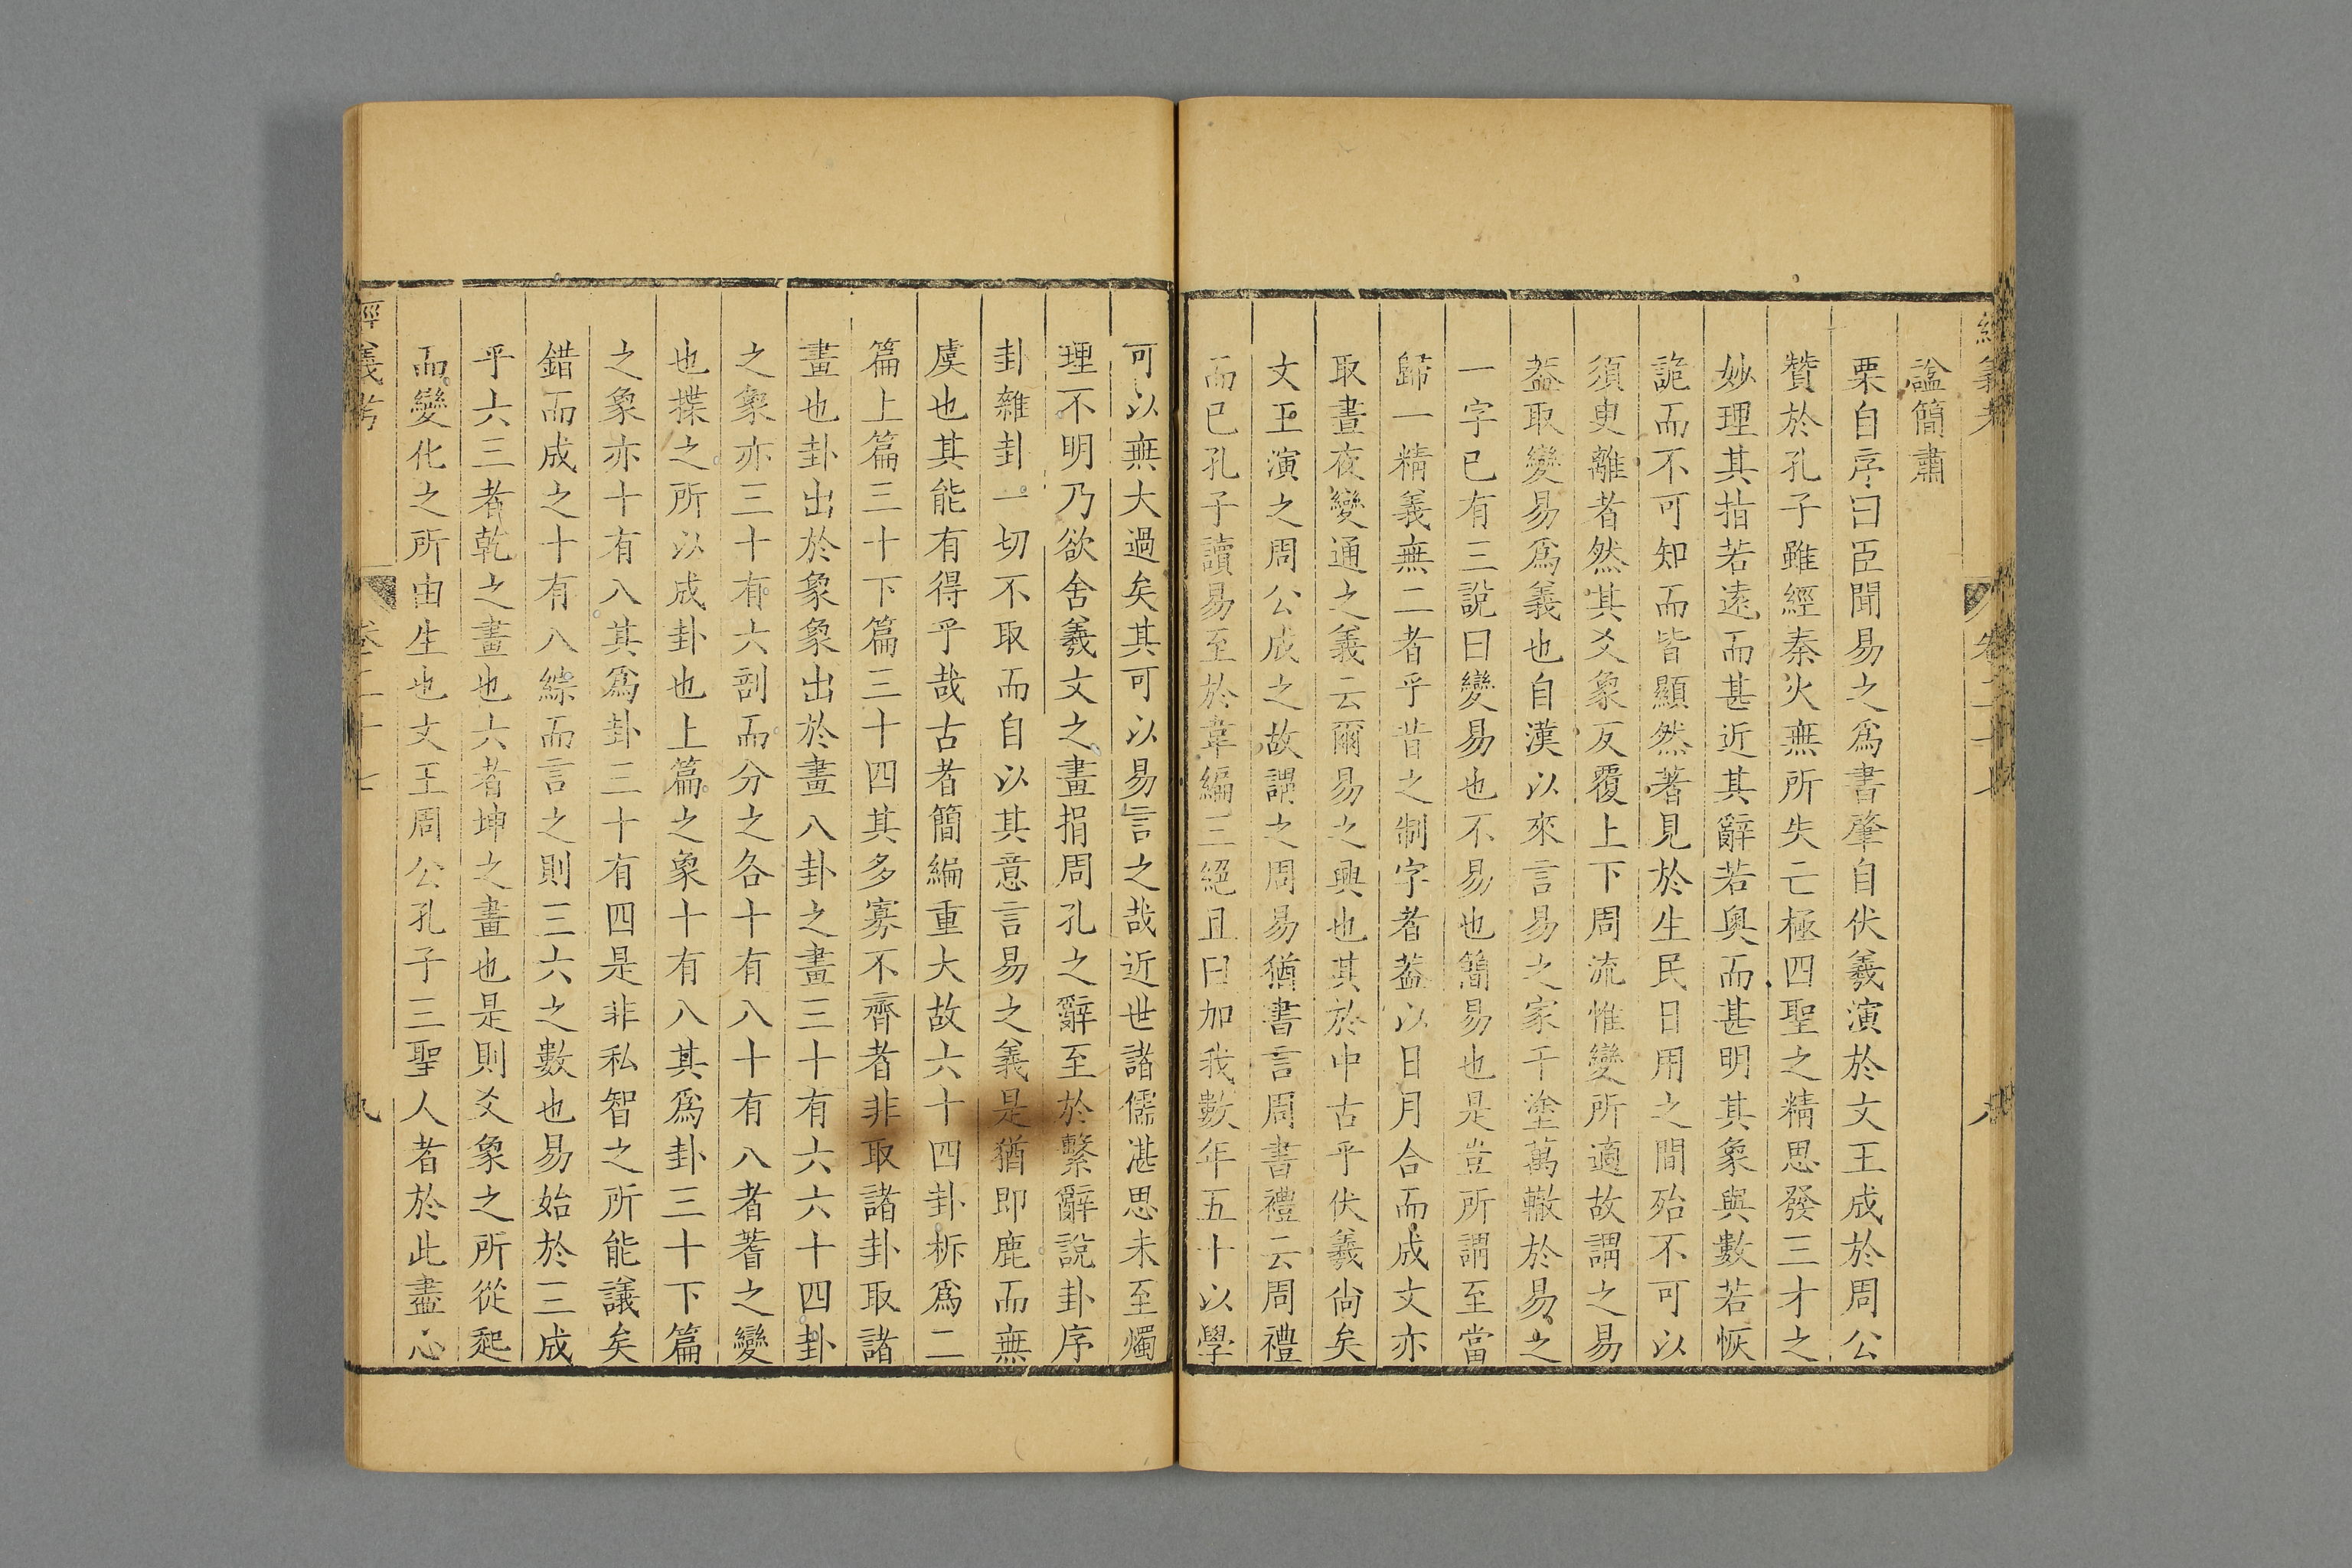 諡簡肅
栗自序曰臣聞易之爲書肇自伏羲演於文王成於周公
贊於孔子雖經秦火無所失亡極四聖之精思發三才之
妙理其指若遠而甚近其辭若奧而甚明其象與數若恢
詭而不可知而皆顯然著見於生民日用之間殆不可以
須臾離者然其爻象反覆上下周流惟變所適故謂之易
葢取變易爲義也自漢以來言易之家千塗萬轍於易之
一字已有三說曰變易也不易也簡易也是豈所謂至當
歸一精義無二者乎昔之制字者葢以日月合而成文亦
取晝夜變通之義云爾易之興也其於中古乎伏羲尙矣
文王演之周公成之故謂之周易猶書言周書禮云周禮
而已孔子讀易至於韋編三絕且曰加我數年五十以學
可以無大過矣其可以易言之哉近世諸儒湛思未至燭
理不明乃欲舍羲文之畫捐周孔之辭至於繫辭說卦序
卦雜卦一切不取而自以其意言易之義是猶即鹿而無
虞也其能有得乎哉古者簡編重大故六十四卦柝爲二
篇上篇三十下篇三十四其多寡不齊者非取諸卦取諸
畫也卦出於象象出於畫八卦之畫三十有六六十四卦
之象亦三十有六剖而分之各十有八十有八者蓍之變
也揲之所以成卦也上篇之象十有八其爲卦三十下篇
之象亦十有八其爲卦三十有四是非私智之所能議矣
錯而成之十有八綜而言之則三六之數也易始於三成
乎六三者乾之畫也六者坤之畫也是則爻象之所從起
而變化之所由生也文王周公孔子三聖人者於此盡心
經義考 卷二十七 九